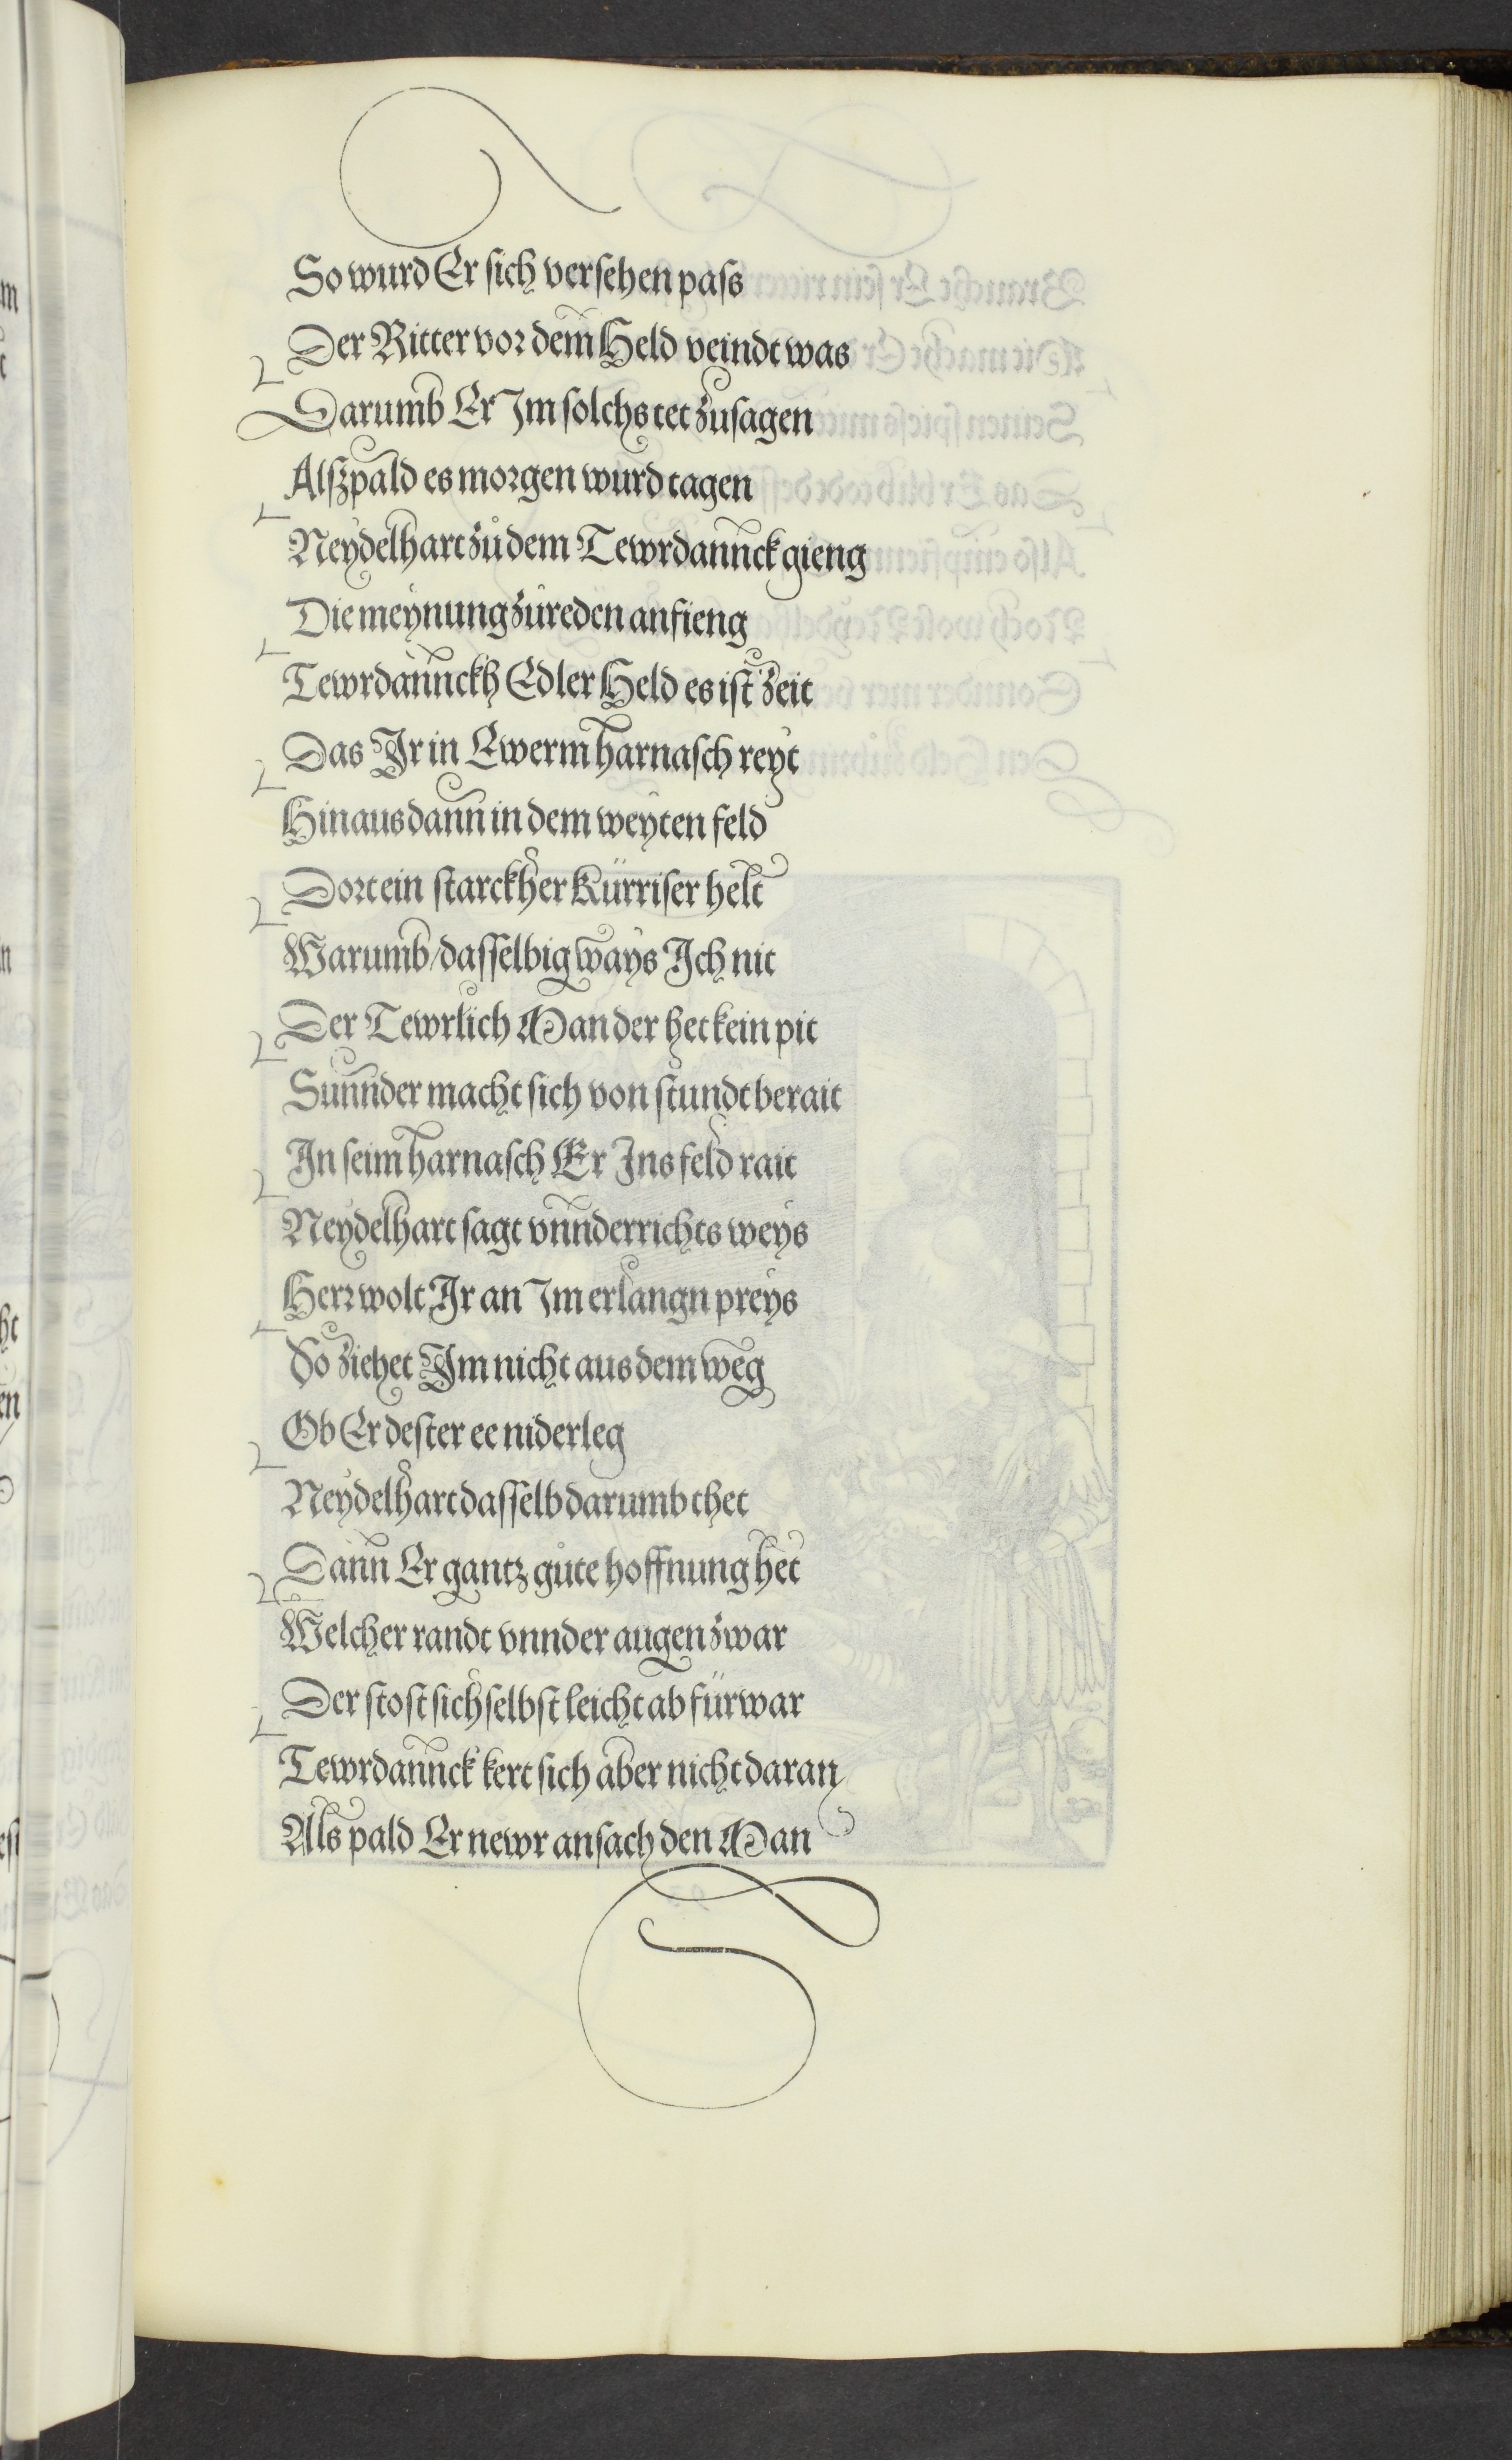 So wurd Er sich versehen pass
Der Ritter vor dem Held veindt was
Darumb Er Im solchs tet zusagen
Alßpald es morgen wurd tagen
Neydelhart zů dem Tewrdannck gieng
Die meynung zůreden anfieng
Tewrdannckh Edler Held es ist zeit
Das Ir in Ewerm harnasch reyt
Hinaus dann in dem weyten feld
Dort ein starckher Kürriser helt
Warumb/dasselbig ways Ich nit
Der Tewrlich Man der het kein pit
Sunnder macht sich von stundt berait
In seim harnasch Er Ins feld rait
Neydelhart sagt vnnderrichts weys
Herr wolt Ir an Im erlangn preys
So ziehet Im nicht aus dem weg
Ob Er dester ee niderleg
Neydelhart dasselb darumb thet
Dann Er gantz gůte hoffnung het
Welcher randt vnnder augen zwar
Der stost sich selbst leicht ab fürwar
Tewrdannck kert sich aber nicht daran
Als pald Er newr ansach den Man